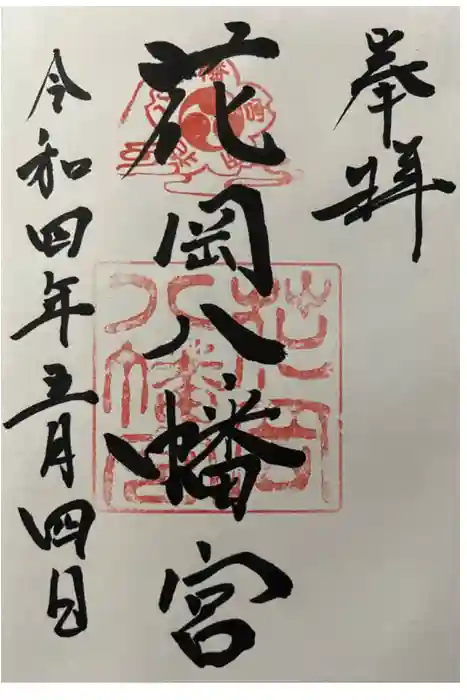 奉拝
花岡八幡宮
花岡八幡宮
令和四年五月四日